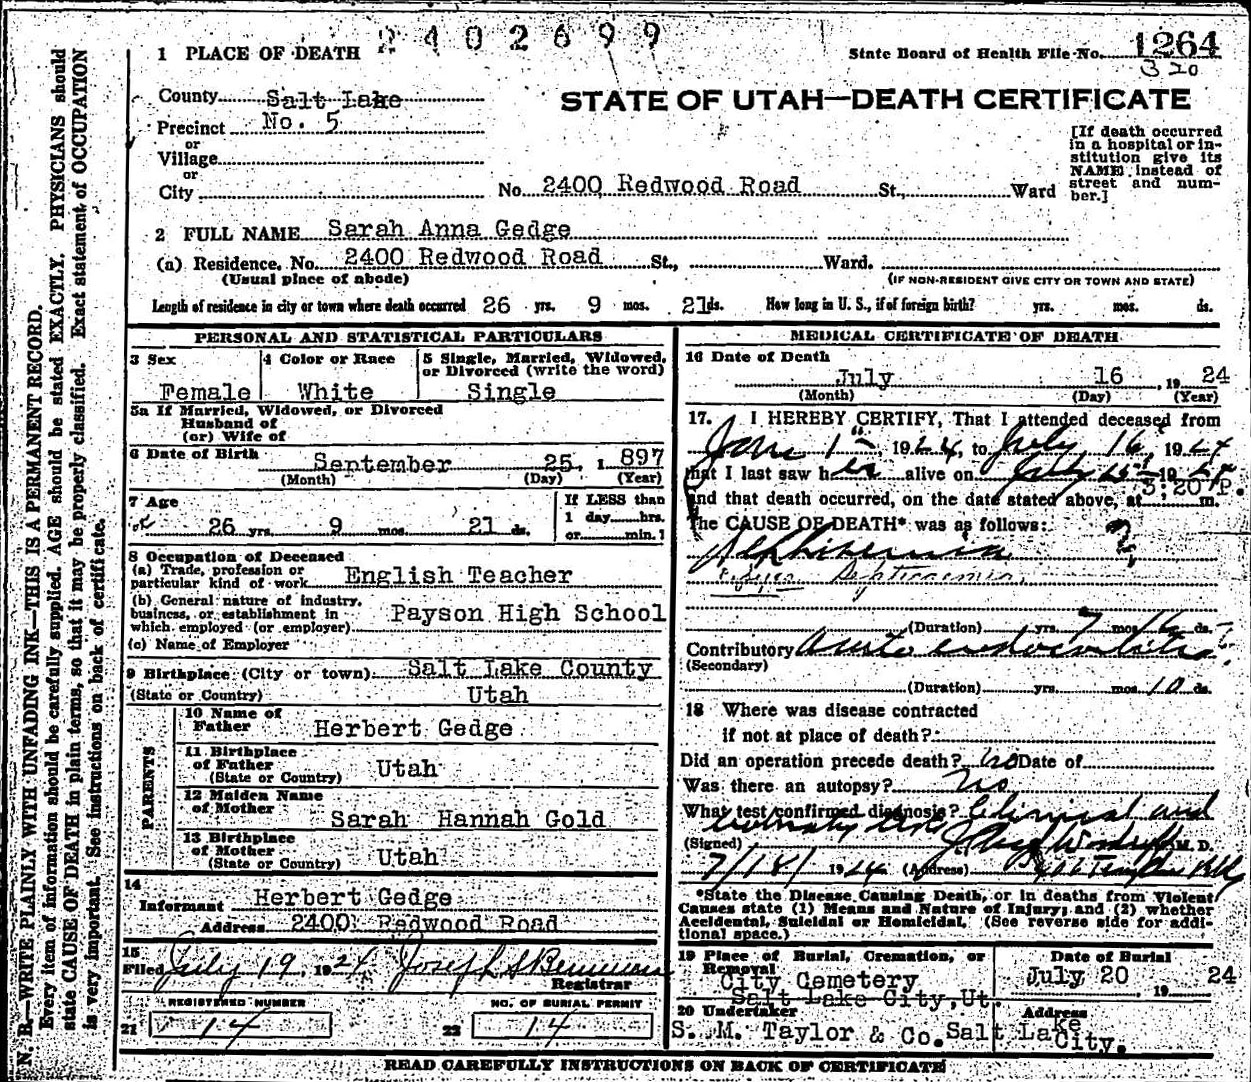 2402699
1 PLACE OF DEATH
State Board of Health File No. 1264
320
County Salt Lake
STATE OF UTAH—DEATH CERTIFICATE
Precinct No. 5
or
Village
or
City
No. 2400 Redwood Road St., Ward
[If death occurred
in a hospital or in-
stitution give its
NAME instead of
street and num-
ber.]
2 FULL NAME Sarah Anna Gedge
(a) Residence, No. 2400 Redwood Road St., Ward.
(Usual place of abode)
(IF NON-RESIDENT GIVE CITY OR TOWN AND STATE)
Length of residence in city or town where death occurred 26 yrs. 9 mos. 21 ds. How long in U. S., if of foreign birth? yrs. mos. ds.
PERSONAL AND STATISTICAL PARTICULARS
3 Sex
Female
4 Color or Race
White
5 Single, Married, Widowed,
or Divorced (write the word)
Single
5a If Married, Widowed, or Divorced
Husband of
(or) Wife of
6 Date of Birth September 25, 1897
(Month) (Day) (Year)
7 Age
26 yrs. 9 mos. 21 ds.
If LESS than
1 day hrs.
or min.?
8 Occupation of Deceased
(a) Trade, profession or
particular kind of work English Teacher
(b) General nature of industry,
business, or establishment in
which employed (or employer) Payson High School
(c) Name of Employer
9 Birthplace (City or town) Salt Lake County
(State or Country) Utah
PARENTS
10 Name of
Father Herbert Gedge
11 Birthplace
of Father
(State or Country) Utah
12 Maiden Name
of Mother Sarah Hannah Gold
13 Birthplace
of Mother
(State or Country) Utah
14
Informant Herbert Gedge
Address 2400 Redwood Road
15
Filed July 19, 1924, Joseph S
Registrar
REGISTERED NUMBER
21 14
NO. OF BURIAL PERMIT
22 14
MEDICAL CERTIFICATE OF DEATH
16 Date of Death
July 16, 1924
(Month) (Day) (Year)
17. I HEREBY CERTIFY, That I attended deceased from
1st, 1924, to July 16, 1924
that I last saw her alive on July, 1924
and that death occurred, on the date stated above, at 5:20 P. m.
The CAUSE OF DEATH* was as follows:
Septicaemia
(Duration) yrs. 7 mos. ds.
Contributory acute endocarditis
(Secondary)
(Duration) yrs. mos. 10 ds.
18 Where was disease contracted
if not at place of death?
Did an operation precede death? no Date of
Was there an autopsy? No
What test confirmed diagnosis? Clinical and
(Signed) M. D.
7/18/1924 (Address)
*State the Disease Causing Death, or in deaths from Violent
Causes state (1) Means and Nature of Injury; and (2) whether
Accidental, Suicidal or Homicidal. (See reverse side for addi-
tional space.)
19 Place of Burial, Cremation, or
Removal
City Cemetery
Salt Lake City, Ut.
Date of Burial
July 20, 1924
20 Undertaker
S. M. Taylor & Co.
Address
Salt Lake City.
READ CAREFULLY INSTRUCTIONS ON BACK OF CERTIFICATE
N. B.—WRITE PLAINLY WITH UNFADING INK—THIS IS A PERMANENT RECORD.
Every item of information should be carefully supplied. AGE should be stated EXACTLY. PHYSICIANS should
state CAUSE OF DEATH in plain terms, so that it may be properly classified. Exact statement of OCCUPATION
is very important. See instructions on back of certificate.